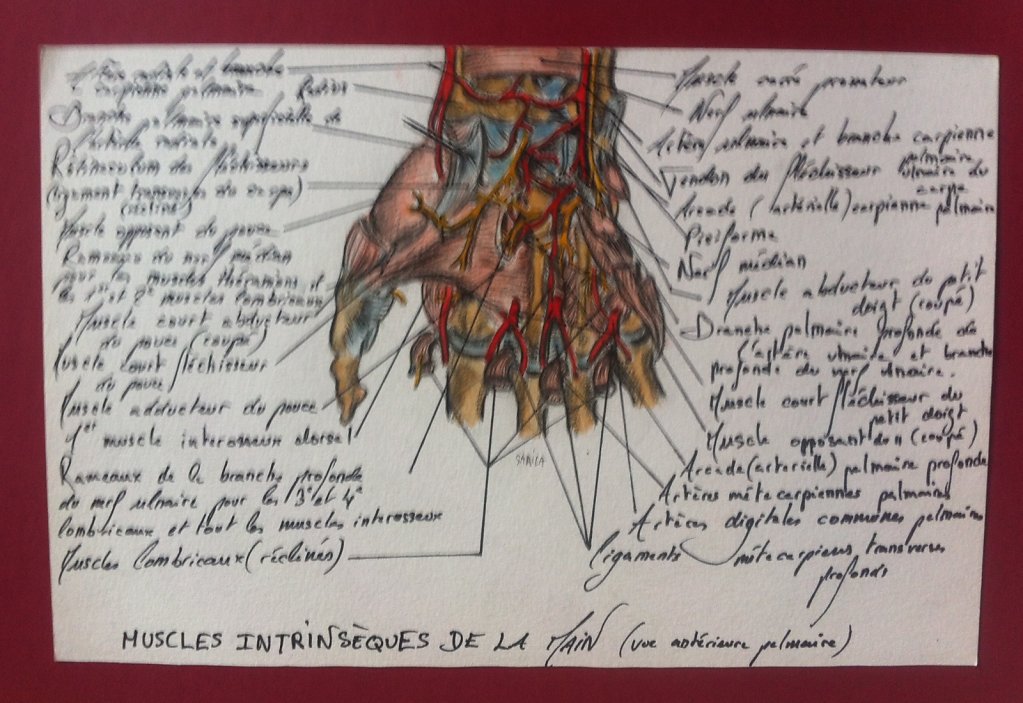 Artère radiale et branche
carpienne palmaire Radius
Branche palmaire superficielle de
l'artère radiale
Rétinaculum des fléchisseurs
(ligament transverse du carpe)
(récliné)
Muscle opposant du pouce
Rameaux du nerf médian
pour les muscles thénariens et
les 1er et 2e muscles lombricaux
Muscle court abducteur
du pouce (coupé)
Muscle court fléchisseur
du pouce
Muscle adducteur du pouce
1er muscle interosseux dorsal
Rameaux de la branche profonde
du nerf ulnaire pour les 3e et 4e
lombricaux et tout les muscles interosseux
Muscles lombricaux (réclinés)
Muscle carré pronateur
Nerf ulnaire
Artère ulnaire et branche carpienne
palmaire
Tendon du fléchisseur ulnaire du
carpe
Arcade (artérielle) carpienne palmaire
Pisiforme
Nerf médian
Muscle abducteur du petit
doigt (coupé)
Branche palmaire profonde de
l'artère ulnaire et branche
profonde du nerf ulnaire.
Muscle court fléchisseur du
petit doigt
Muscle opposant (coupé)
Arcade (artérielle) palmaire profonde
Artères métacarpiennes palmaires
Artères digitales communes palmaires
Ligaments métacarpiens transverses
profonds
SAMICA
MUSCLES INTRINSÈQUES DE LA MAIN (vue antérieure palmaire)